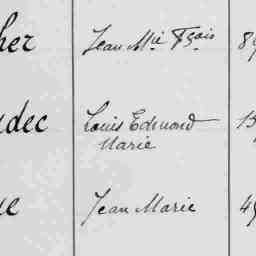 her Jean Mie Fçois 8
udec Louis Edmond
Marie 13
ue Jean Marie 49